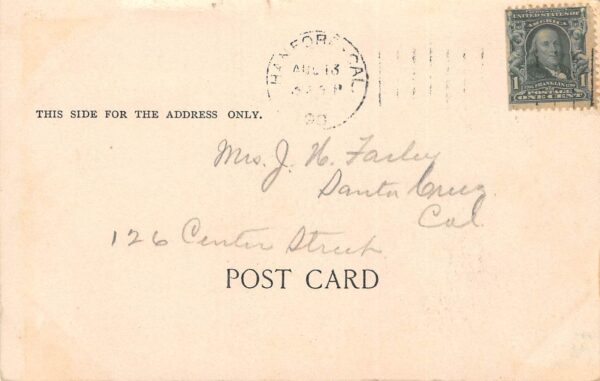 UNITED STATES OF
AMERICA
FRANKLIN
POSTAGE
1 ONE CENT 1
HANFORD, CAL.
AUG 13
190
THIS SIDE FOR THE ADDRESS ONLY.
Mrs. J. H. Farley
Santa Cruz
Cal.
126 Center Street
POST CARD